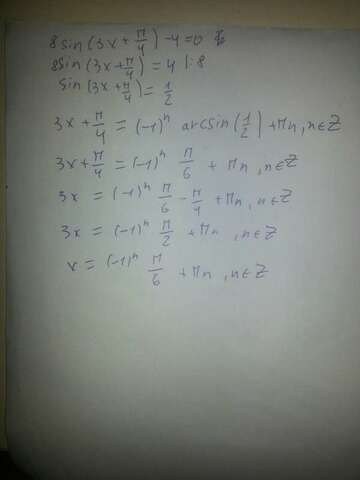 8sin(3x + π/4) - 4 = 0
8sin(3x + π/4) = 4 |:8
sin(3x + π/4) = 1/2
3x + π/4 = (-1)ⁿ arcsin(1/2) + πn, n∈Z
3x + π/4 = (-1)ⁿ π/6 + πn, n∈Z
3x = (-1)ⁿ π/6 - π/4 + πn, n∈Z
3x = (-1)ⁿ π/2 + πn, n∈Z
x = (-1)ⁿ π/6 + πn, n∈Z